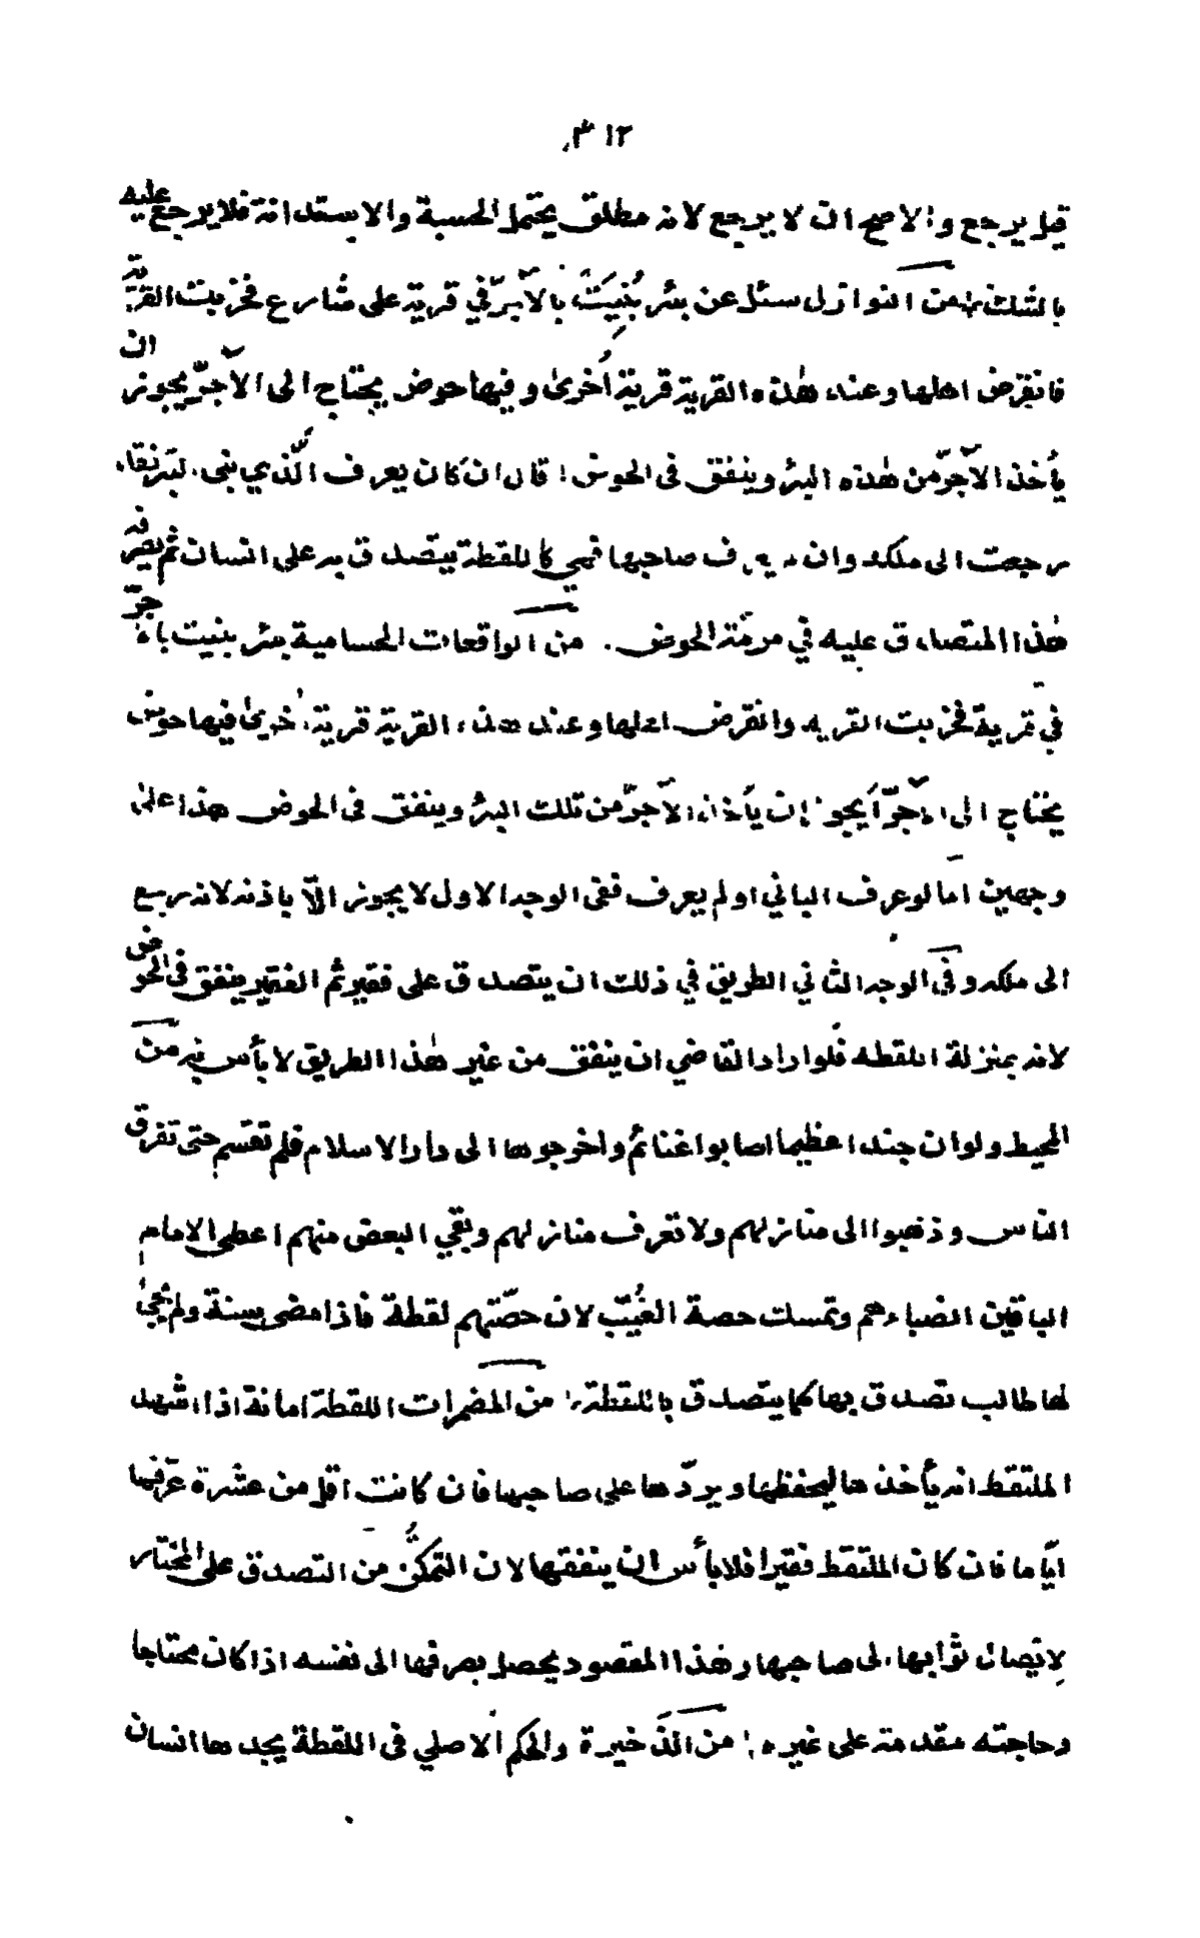 ٣١٢
قيل يرجع والاصح ان لا يرجع لانه مطلق يحتمل الحسبة والاستدانة فلا يرجع عليه
بالشك من النوازل سئل عن بئر بُنِيَت بالآجرّ في قرية على شارع فخربت القرية
فانقرض اهلها وعند هٰذه القرية قرية اُخرىٰ وفيها حوض يحتاج الى الآجرّ يجوز ان
يأخذ الآجرّ من هٰذه البئر وينفق فى الحوض قال ان كان يعرف الّذي بنى البئر
رجعت الى ملكه وان لم يعرف صاحبها فهي كاللقطة يتصدق به على انسان ثم يصرفه
هٰذا المتصدق عليه في مرمّة الحوض . من الواقعات الحسامية بئر بنيت بآجرّ
في قرية فخربت القرية وانقرض اهلها وعند هذه القرية قرية اخرىٰ فيها حوض
يحتاج الى الآجرّ أيجوز ان يأخذ الآجرّ من تلك البئر وينفق فى الحوض هذا على
وجهين امّا لو عرف الباني او لم يعرف ففى الوجه الاول لا يجوز الّا باذنه لانه رجع
الى ملكه وفي الوجه الثاني الطريق في ذلك ان يتصدق على فقير ثم الفقير ينفق فى الحوض
لانه بمنزلة اللقطه فلو اراد القاضي ان ينفق من غير هٰذا الطريق لا بأس به من
المحيط ولو ان جندا عظيما اصابوا غنائم واخرجوها الى دار الاسلام فلم تقسم حتى تفرق
الناس وذهبوا الى منازلهم ولا تعرف منازلهم وبقي البعض منهم اعطى الامام
الباقين انصباءهم وتمسك حصة الغُيّب لان حصّتهم لقطة فاذا مضى سنة ولم يجئ
لها طالب تصدق بها كما يتصدق باللقطة من المضمرات اللقطة امانة اذا اشهد
الملتقط انه يأخذها ليحفظها ويردّها على صاحبها فان كانت اقل من عشرة عرّفها
ايّاما فان كان الملتقط فقيرا فلا بأس ان ينفقها لان التمكُّن من التصدق على المختار
لاتصال ثوابها الى صاحبها وهٰذا المقصود يحصل بصرفها الى نفسه اذا كان محتاجا
وحاجته مقدمة على غيره من الذخيرة والحكم الاصلي فى اللقطة يجدها انسان